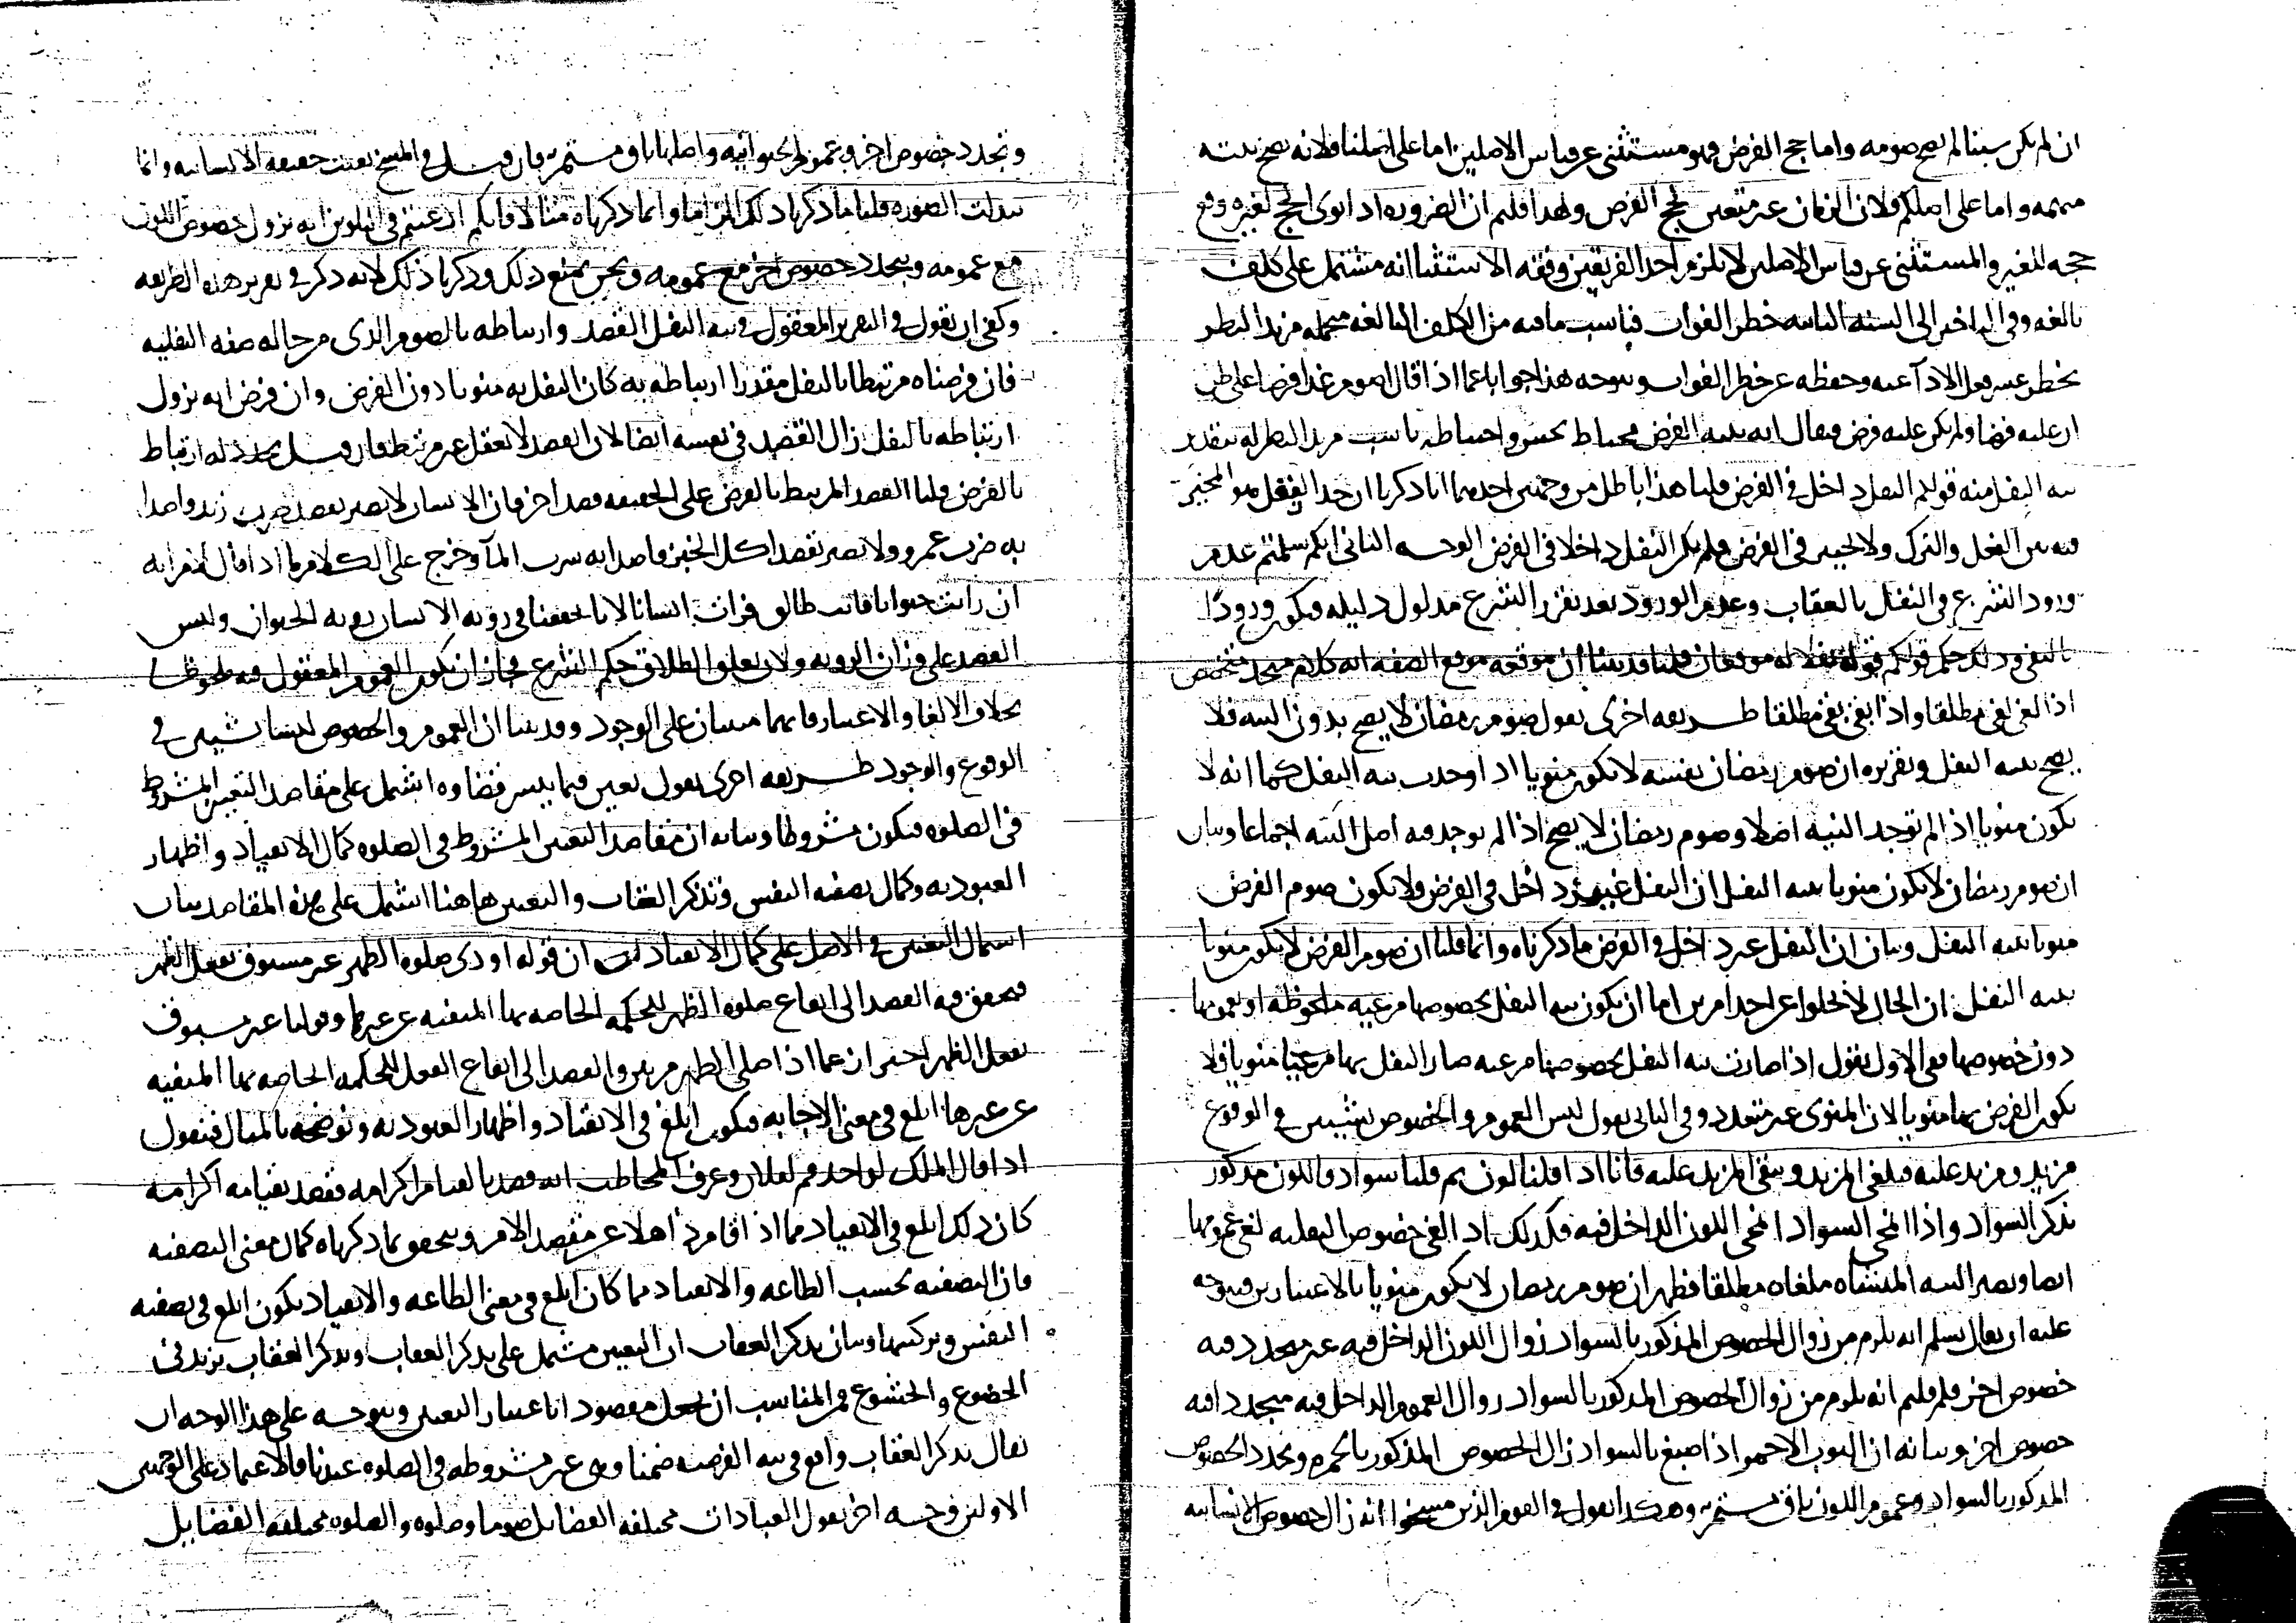 ان لم يكن سببا لم يصح صومه واما حج الفرض فهو مستثنى عن قياس الاصلين اما على اصلنا فلانه يصح بنية
مبهمة واما على اصلكم فلان الزمان غير متعين لحج الفرض ولهذا قلتم ان الضرورة اذا نوى الحج لغيره وقع
حجه للغير والمستثنى عن قياس الاصلين لا يلزم احد الفريقين وفقه الاستثنا انه مشتمل على كلف
بالغة وفي التاخير الى السنة الثانية خطر الفوات فناسب ما فيه من الكلف البالغة مزيد النظر
وحفظه عن خطر الفوات ويتوجه هذا جوابا عما اذا قال اصوم غدا فرضا على ظن
ان عليه فرضا ولم يكن عليه فرض فيقال انه بنية الفرض محتاط محسن واحتياطه يناسب مزيد النظر له بتقدير
نية النفل منه قولهم النفل داخل في الفرض قلنا هذا باطل من وجهين احدهما انا ذكرنا ان حد النفل هو المخير
فيه بين الفعل والترك ولا تخيير في الفرض فلم يكن النفل داخلا في الفرض الوجه الثاني انكم سلمتم عدم
ورود الشرع في النفل بالعقاب وعدم الورود بعد تقرر الشرع مدلول دليله فيكون ورودا
بالنفي وذلك حكم قولكم قوله نفلا له موقعان قلنا قد بينا ان موقعه موقع الصفة انه كلام متحد متخصص
اذا لغى لغى مطلقا واذا بقي بقي مطلقا طريقة اخرى نقول صوم رمضان لا يصح بدون النية فلا
يصح بنية النفل وتقريره ان صوم رمضان نفسه لا يكون منويا اذا وجدت نية النفل كما انه لا
يكون منويا اذا لم توجد النية اصلا وصوم رمضان لا يصح اذا لم توجد فيه اصل النية اجماعا وبيان
ان صوم رمضان لا يكون منويا بنية النفل ان النفل غير داخل في الفرض ولا يكون صوم الفرض
منويا بنية النفل وبيان ان النفل غير داخل في الفرض ما ذكرناه وانما قلنا ان صوم الفرض لا يكون منويا
بنية النفل ان الحال لا يخلوا عن احد امرين اما ان يكون نية النفل بخصوصها مرعية ملحوظة او بعمومها
دون خصوصها ففي الاول نقول اذا صارت نية النفل بخصوصها مرعية صار النفل بها مرعيا منويا فلا
يكون الفرض بها منويا لان المنوي غير متعدد وفي الثاني نقول ليس العموم والخصوص بشيئين في الوقوع
مزيد ومزيد عليه فيلغى المزيد ويبقى المزيد عليه فانا اذا قلنا لون ثم قلنا سواد فاللون مذكور
بذكر السواد واذا انمحى السواد انمحى اللون الداخل فيه فكذلك اذا الغي خصوص النفلية لغى عمومها
ايضا وتصير النية المنشاة ملغاة مطلقا فظهر ان صوم رمضان لا يكون منويا بالاعتبارين فيتوجه
عليه ان يقال نسلم انه يلزم من زوال الخصوص المذكور بالسواد زوال اللون الداخل فيه غير متجدد فيه
خصوص اخر فلم قلتم انه يلزم من زوال الخصوص المذكور بالسواد زوال العموم الداخل فيه متجددا فيه
خصوص اخر وبيانه ان الثوب الاحمر اذا صبغ بالسواد زال الخصوص المذكور بالحمرة وتجدد الخصوص
المذكور بالسواد وعموم اللون باق مستمر وهكذا نقول في القوم الذين مسخوا انه زال خصوص الانسانية
وتجدد خصوص اخر وعموم الحيوانية واصلها باق مستمر فان قيل في المسخ بقيت حقيقة الانسانية وانما
تبدلت الصورة قلنا ما ذكرنا ذلك الزاما وانما ذكرناه مثالا فانكم ادعيتم في التلوين انه يزول خصوص اللون
مع عمومه ويتجدد خصوص اخر مع عمومه ونحن نمنع ذلك وذكرنا ذلك لانه ذكر في تقرير هذه الطريقة
وكفى ان نقول في التقرير المعقول في نية النفل القصد وارتباطه بالصوم الذي من حاله صفة النفلية
فان فرضناه مرتبطا بالنفل مقدرا ارتباطه به كان النفل به منويا دون الفرض وان فرض انه يزول
ارتباطه بالنفل زال القصد في نفسه ايضا لان القصد لا يعقل غير مرتبط فان قيل يتجدد له ارتباط
بالفرض قلنا القصد المرتبط بالفرض على الحقيقة قصد اخر فان الانسان لا يصير بقصد ضرب زيد قاصدا
به ضرب عمرو ولا يصير بقصد اكل الخبز قاصدا به شرب الماء وخرج على الكلام ما اذا قال لامراته
ان رايت حيوانا فانت طالق فرات انسانا لانا حققنا في روية الانسان روية الحيوان وليس
القصد على وزان الروية ولان تعلق الطلاق حكم الشرع فجاز ان يكون العموم المعقول فيه ملحوظا
بخلاف الالغا والاعتبار فانهما مبنيان على الوجود وقد بينا ان العموم والخصوص ليسا شيئين في
الوقوع والوجود طريقة اخرى نقول تعيين فيما يتيسر قضاوه اشتمل على مقاصد التعيين المشروط
في الصلوة فيكون مشروطا وبيانه ان مقاصد التعيين المشروط في الصلوة كمال الانقياد واظهار
العبودية وكمال تصفية النفس وتذكر العقاب والتعيين هاهنا اشتمل على هذه المقاصد بيان
اشتمال التعيين في الاصل على كمال الانقياد ان قوله اودي صلوة الظهر غير مسبوق بفعل الظهر
فيحقق فيه القصد الى ايقاع صلوة الظهر للحكمة الخاصة بها المنفية عن غيرها وقولنا غير مسبوق
بفعل الظهر احتراز عما اذا صلى الظهر مرتين والقصد الى ايقاع الفعل للحكمة الخاصة بها المنفية
عن غيرها ابلغ في معنى الاجابة فيكون ابلغ في الانقياد واظهار العبودية ونوضحه بالمثال فنقول
اذا قال الملك لواحد قم لفلان وعرف المخاطب انه قصد بالقيام اكرامه فقصد بقيامه اكرامه
كان ذلك ابلغ في الانقياد مما اذا قام ذاهلا عن مقصد الامر ويتحقق بما ذكرناه كمال معنى التصفية
فان التصفية بحسب الطاعة والانقياد فما كان ابلغ في معنى الطاعة والانقياد يكون ابلغ في تصفية
النفس وتزكيتها وبيان تذكر العقاب ان التعيين مشتمل على تذكر العقاب وتذكر العقاب يزيد في
الخضوع والخشوع فمن المناسب ان يجعل مقصودا باعتبار التعيين ويتوجه على هذا الوجه ان
يقال تذكر العقاب واقع في نية الفرضية ضمنا وهي غير مشروطة في الصلوة عندنا فالاعتماد على الوجهين
الاولين وجه اخر نقول العبادات مختلفة الفضائل صوما وصلوة والصلوة مختلفة الفضائل